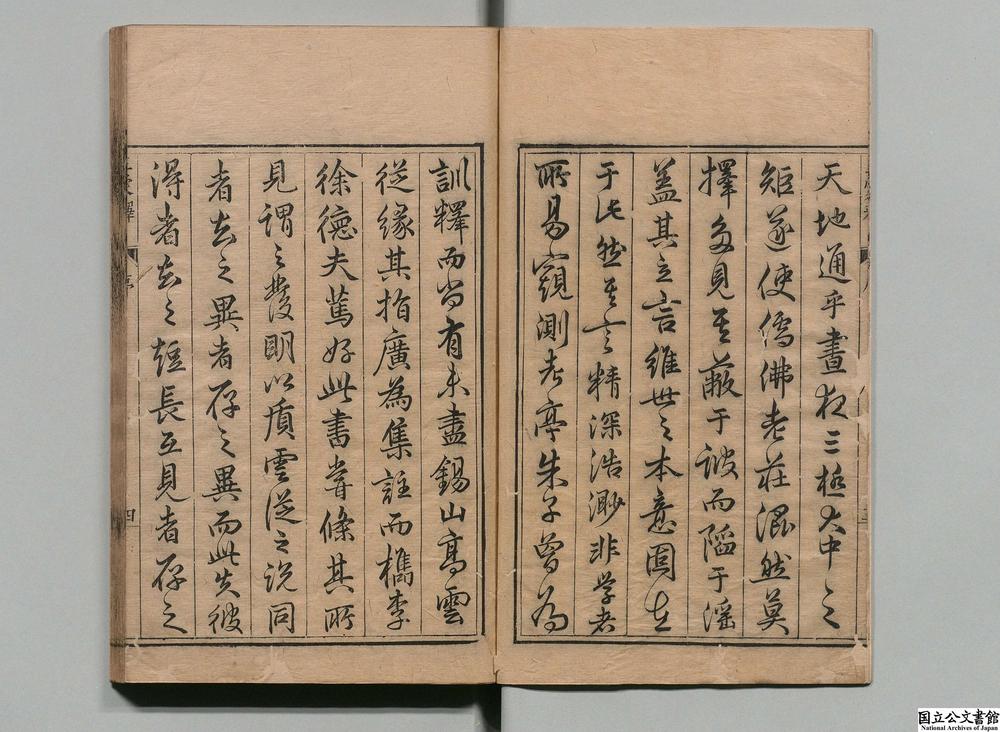 天地通乎晝夜三極大中之
矩遂使儒佛老莊混然莫
擇多見其蔽于詖而陷于淫
蓋其立言維世之本意固在
于此然其言精深浩渺非学者
所易窺測考亭朱子曾为
訓釋而尚有未盡錫山高雲
從緣其指廣為集註而檇李
徐德夫篤好此書嘗條其所
見謂之發明以質雲從之說同
者去之異者存之異而此失彼
得者去之短長互見者存之
四
国立公文書館
National Archives of Japan